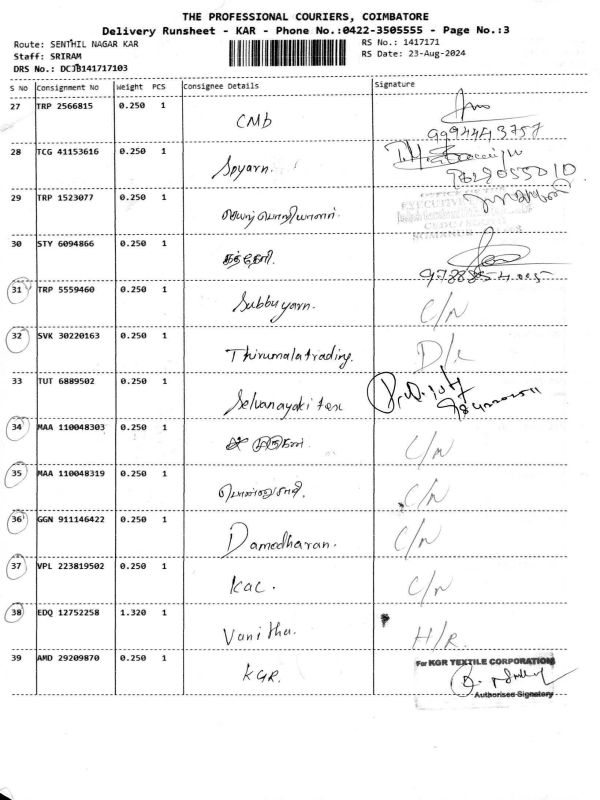 THE PROFESSIONAL COURIERS, COIMBATORE
Delivery Runsheet - KAR - Phone No.:0422-3505555 - Page No.:3
Route: SENTHIL NAGAR KAR
RS No.: 1417171
Staff: SRIRAM
RS Date: 23-Aug-2024
DRS No.: DCJB141717103
S No Consignment No Weight PCS Consignee Details Signature
27 TRP 2566815 0.250 1 CMb
9994443757
28 TCG 41153616 0.250 1 Spyarn.
29 TRP 1523077 0.250 1
30 STY 6094866 0.250 1
31 TRP 5559460 0.250 1 Subbuyarn. C/N
32 SVK 30220163 0.250 1 Thirumalatrading. D/L
33 TUT 6889502 0.250 1 Selvanayaki tex
34 MAA 110048303 0.250 1 C/N
35 MAA 110048319 0.250 1 C/N
36 GGN 911146422 0.250 1 Damodharan. C/N
37 VPL 223819502 0.250 1 KAC. C/N
38 EDQ 12752258 1.320 1 Vanitha. H/R.
39 AMD 29209870 0.250 1 KGR.
For KGR TEXTILE CORPORATION
Authorised Signatory